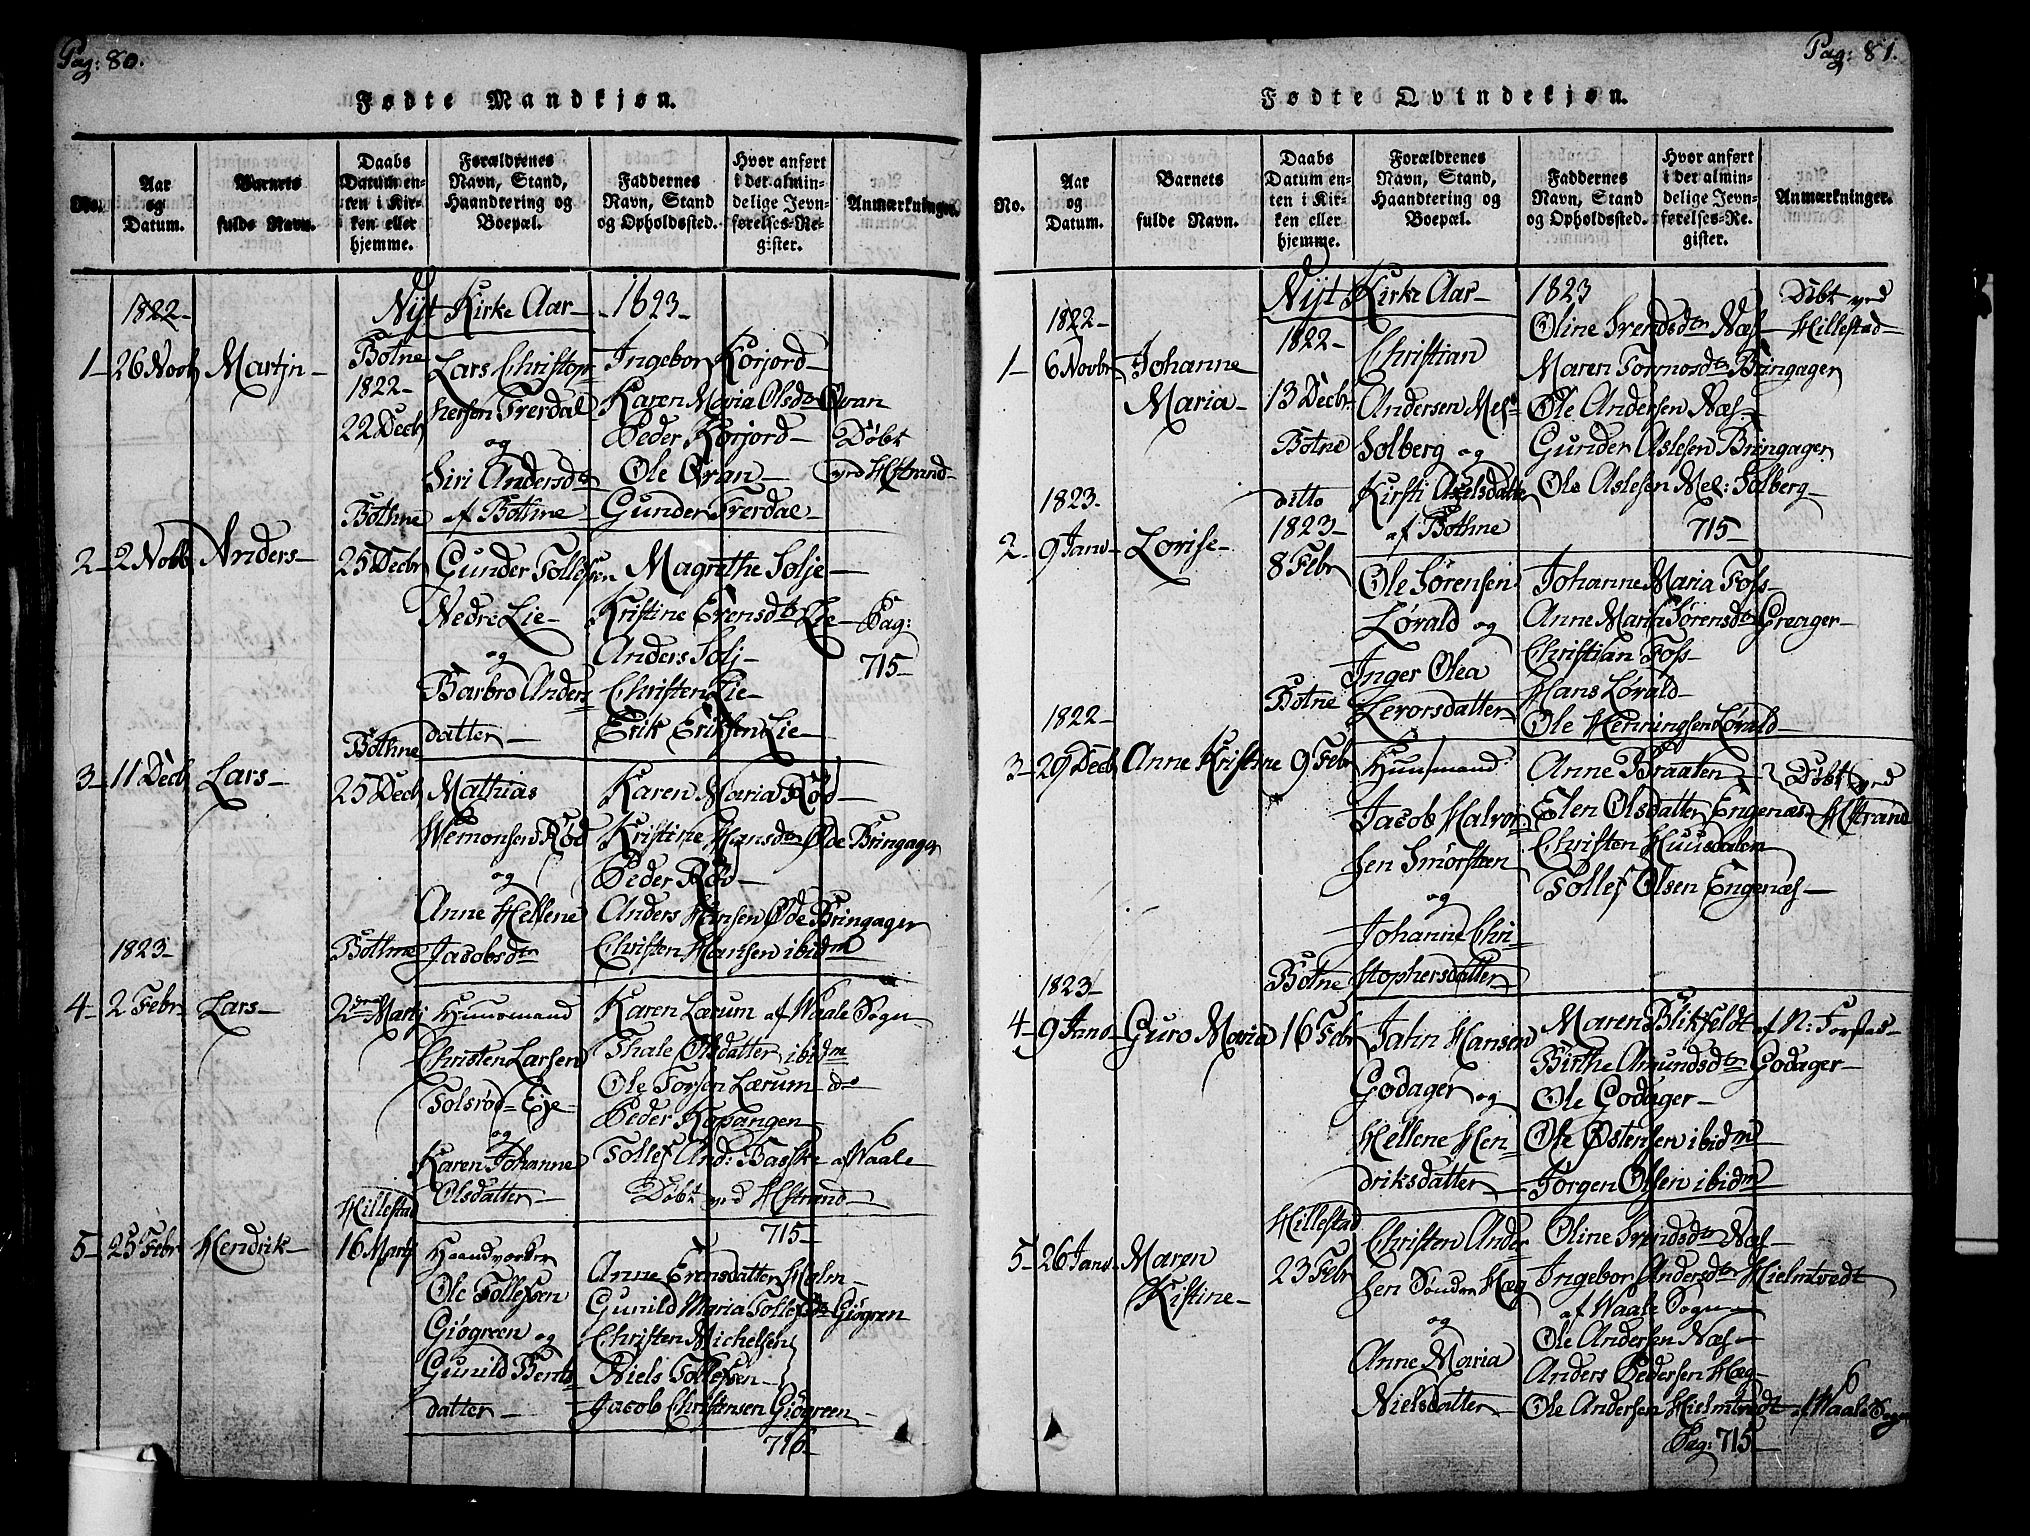 Pag: 80.
Fødte Mandkjøn.
No.
Aar
og
Datum.
Barnets
fulde Navn.
Daabs
Datum en-
ten i Kir-
ken eller
hjemme.
Forældrenes
Navn, Stand,
Haandtering og
Boepæl.
Faddernes
Navn, Stand
og Opholdssted.
Hvor anført
i det almin-
delige Jevn-
førelses-Re-
gister.
Anmærkninger.
1822-
Nyt Kirke Aar - 1823-
1- 26 Novb Martin-
Botne
1822-
22 Decb
Lars Christop-
hersen Frerdal
og
Siri Andersdtr
af Bothne
Ingebor Korjord-
Karen Maria Olsdtr Qvan
Peder Korjord-
Ole Qvan-
Gunder Frerdal-
Døbt
ved Hstrand-
2- 2 Novb Anders-
Bothne
25 Decbr
Gunder Tollefsen
Nedre Lie-
og
Barbro Anders
datter-
Magrethe Solje-
Kristine Evensdtr Lie-
Anders Solj-
Christen Lie-
Erik Eriksen Lie-
Pag:
715-
3- 11 Decb Lars-
Bothne
25 Decb
Mathias
Wemonsen Rød
og
Anne Hellene
Jacobsdtr
Karen Maria Rød-
Kristine Hansdtr Øde Bringager
Peder Rød-
Anders Hansen Øde Bringager
Christen Hansen ibidm
1823-
4- 2 Febr Lars-
Bothne
2den Martj
Huusmand
Christen Larsen
Solsrød Eje-
og
Karen Johanne
Olsdatter-
Karen Lærum af Waale Sogn-
Thale Olsdatter ibidm
Ole Torsen Lærum do
Peder Kopangen-
Tollef And: Baske af Waale
Døbt ved Hstrand-
715-
5- 25 Febr Hendrik-
Hillestad
16 Martj
Haandverker
Ole Tollefsen
Giøgreen og
Gunild Bents
datter-
Anne Evensdatter Holm-
Gunild Maria Tollefsdtr Giøgreen
Christen Michelsen
Niels Tollefsen-
Jacob Christensen Giøgreen-
716-
Pag: 81.
Fødte Qvindekjøn.
No.
Aar
og
Datum.
Barnets
fulde Navn.
Daabs
Datum en-
ten i Kir-
ken eller
hjemme.
Forældrenes
Navn, Stand,
Haandtering og
Boepæl.
Faddernes
Navn, Stand
og Opholdssted.
Hvor anført
i det almin-
delige Jevn-
førelses-Re-
gister.
Anmærkninger.
1822-
Nyt Kirke Aar- 1823
1- 6 Novbr Johanne
Maria-
1822-
13 Decbr
Botne
Christian
Andersen Mel:
Solberg og
Kirsti Axelsdatter
af Bothne
Oline Svendsdtr Næs-
Maren Tormosdtr Bringager
Ole Andersen Næs-
Gunder Aslesen Bringager
Ole Aslesen Mel: Solberg-
715-
Døbt ved
Hillestad-
1823-
2- 9 Janv- Lovise-
ditto
1823-
8 Febr
Ole Sørensen
Løvald og
Inger Olea
Levorsdatter
Johanne Maria Foss-
Anne Maria Sørensdtr Greager-
Christian Foss-
Hans Løvald-
Ole Henningsen Løvald-
1822-
3- 29 Decb Anne Kristine
Botne
9 Febr
Huusmand
Jacob Halvor
sen Smørsteen
og
Johanne Chri-
stophersdatter-
Anne Braaten-
Elen Olsdatter Engenæs-
Christen Huusdalen
Tollef Olsen Engenæs-
Døbt ved
Hstrand
1823-
4- 9 Janv- Guro Maria
Botne
16 Febr
Jahn Hansen
Godager og
Hellene Hen-
driksdatter-
Maren Blikfeldt af N: Forstas-
Birthe Amundsdtr Godager-
Ole Godager-
Ole Østensen ibidm
Jørgen Olsen ibidm
5- 26 Janv- Maren
Kistine-
Hillestad
23 Febr
Christen Ander
sen Søndre Hæg
og
Anne Maria
Nielsdatter-
Oline Svendsdtr Næs-
Ingebor Andersdtr Hielmtvedt
af Waale Sogn
Ole Andersen Næs-
Anders Pedersen Hæg-
Ole Andersen Hielmtvedt af Waale Sogn
Pag: 715-